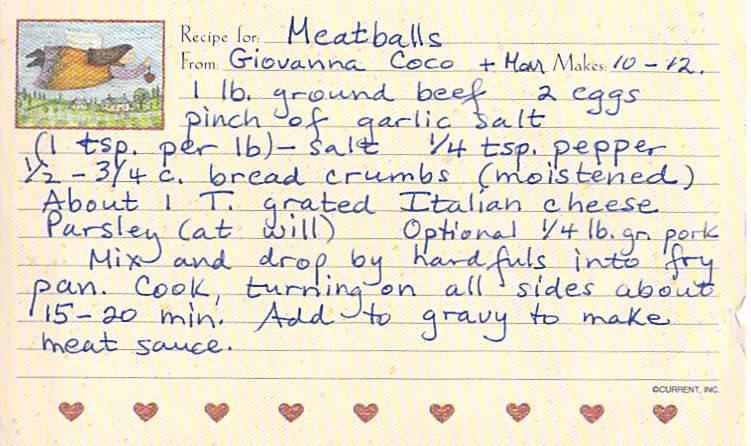 Recipe for: Meatballs
From: Giovanna Coco + Mom Makes: 10-12.
1 lb. ground beef 2 eggs
pinch of garlic salt
(1 tsp. per lb) - salt 1/4 tsp. pepper
1/2 - 3/4 c. bread crumbs (moistened)
About 1 T. grated Italian cheese
Parsley (at will) Optional 1/4 lb. gr. pork
Mix and drop by handfuls into fry
pan. Cook, turning on all sides about
15-20 min. Add to gravy to make
meat sauce.
©CURRENT, INC.